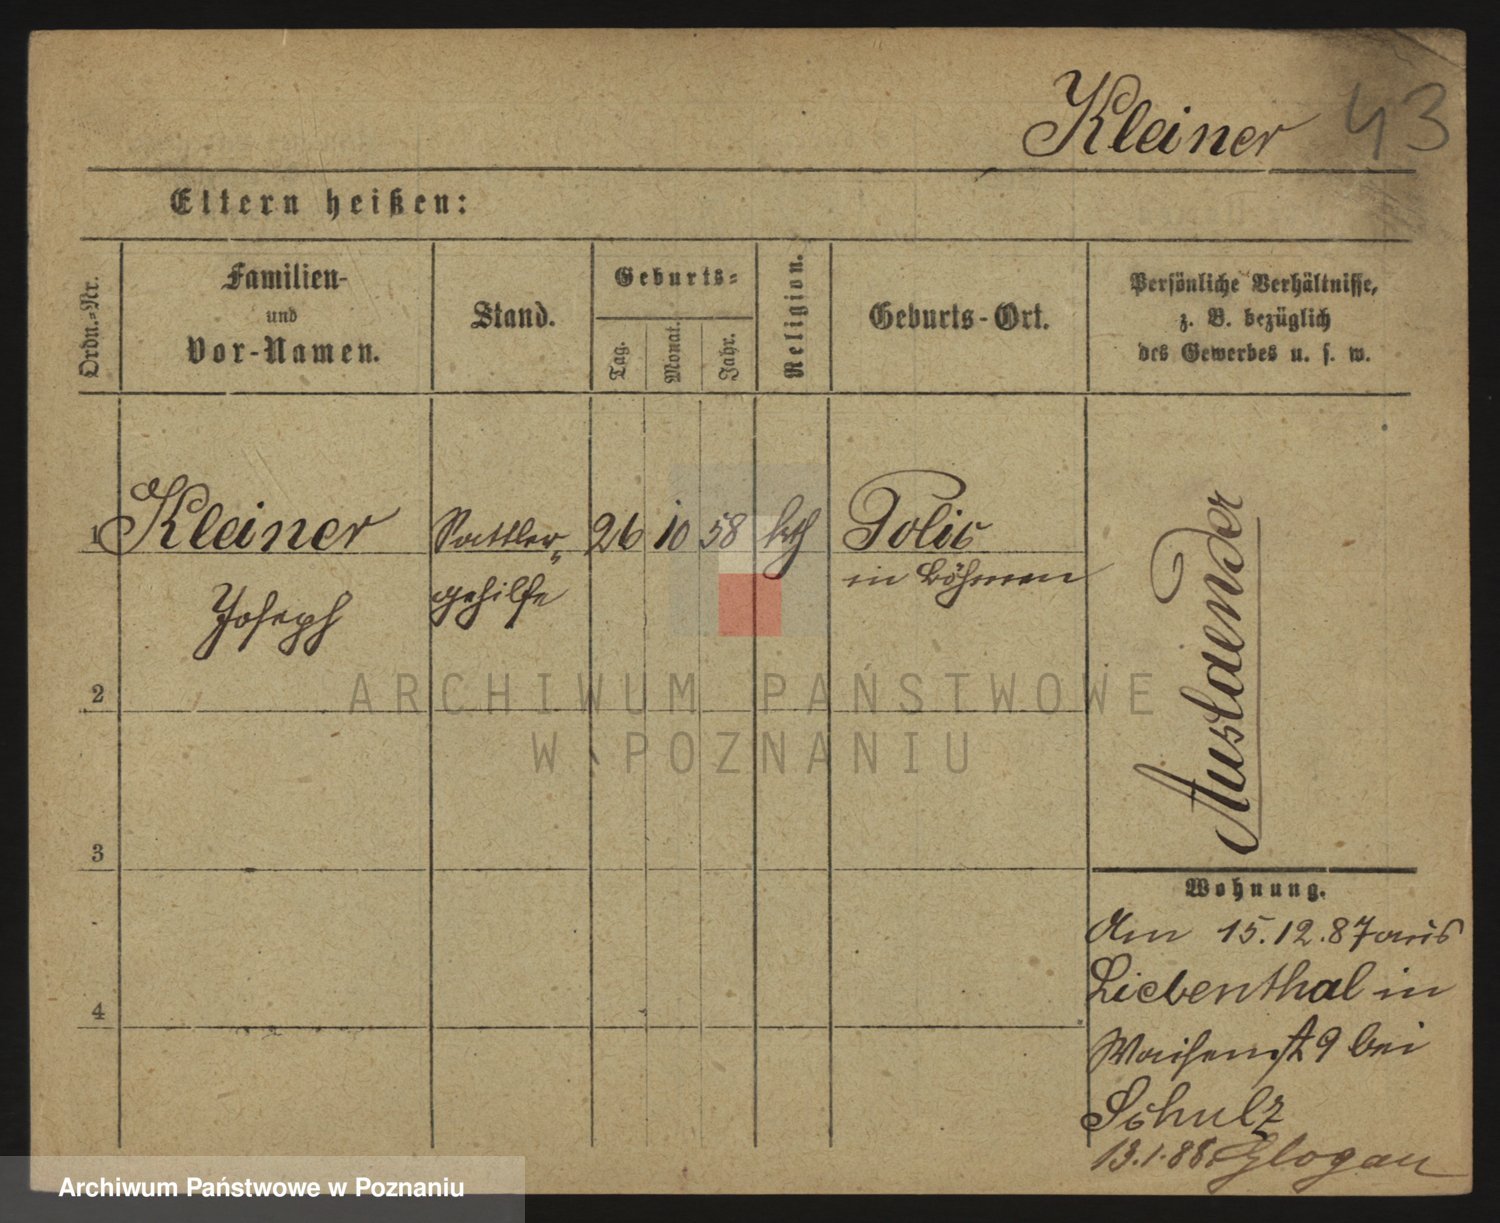 Kleiner 43
Eltern heißen:
Ordn.-Nr.
Familien-
und
Vor-Namen.
Stand.
Geburts=
Tag.
Monat.
Jahr.
Religion.
Geburts-Ort.
Persönliche Verhältnisse,
z. B. bezüglich
des Gewerbes u. s. w.
1 Kleiner Sattler= 26 10 58 kth Polic
Joseph gehilfe in Böhmen
Auslaender
2
3
4
Wohnung.
Am 15.12.87 aus
Liebenthal in
Waisenst 9 bei
Schulz
13.1.88. Glogau
ARCHIWUM PAŃSTWOWE
W POZNANIU
Archiwum Państwowe w Poznaniu